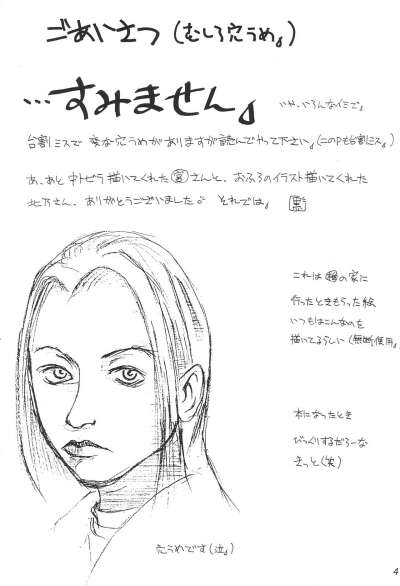 ごあいさつ (むしろ穴うめ。)
…すみません。 いや、いろんなイミで。
台割ミスで変な穴うめがありますが読んでやって下さい。(このPも台割ミス。)
あ、あと中トビラ描いてくれたさんと、おふろのイラスト描いてくれた
北乃さん、ありがとうございました。 それでは。
これはの家に
行ったときもらった絵
いつもはこんなのを
描いてるらしい(無断使用。
本になったとき
びっくりするだろーな
きっと(笑)
穴うめです(泣)
4